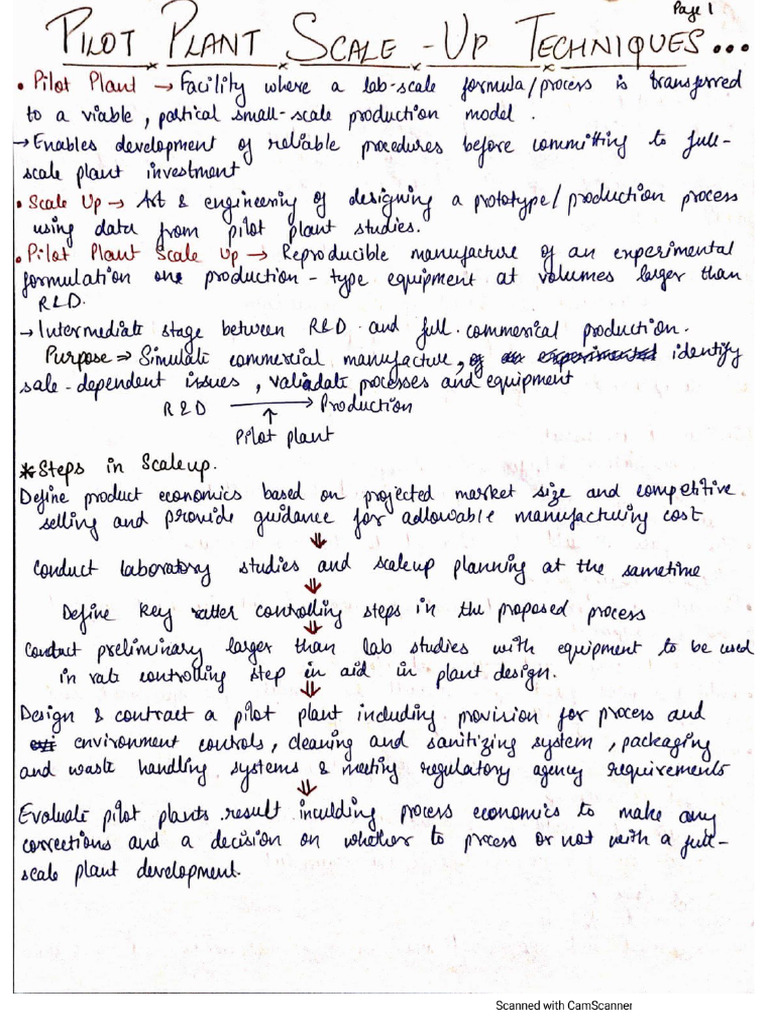 Page 1
PILOT PLANT SCALE-UP TECHNIQUES...
• Pilot Plant → Facility where a lab-scale formula/process is transferred
to a viable, partical small-scale production model.
→ Enables development of reliable procedures before committing to full-
scale plant investment
• Scale Up → Art & engineering of designing a prototype/production process
using data from pilot plant studies.
• Pilot Plant Scale Up → Reproducible manufacture of an experimental
formulation one production-type equipment at volumes larger than
R&D.
→ Intermediate stage between R&D and full commerical production.
Purpose ⇒ Simulate commercial manufacture, identify
sale-dependent issues, valiadate processes and equipment
R&D → Production
↑
Pilot plant
* Steps in Scaleup.
Define product economics based on projected market size and competitive
selling and provide guidance for allowable manufacturing cost
⇓
Conduct laboratory studies and scaleup planning at the sametime
⇓
Define key ratter controlling steps in the proposed process
⇓
Conduct preliminary larger than lab studies with equipment to be used
in rate controlling step in aid in plant design.
⇓
Design & contract a pilot plant including provision for process and
environment controls, cleaning and sanitizing system, packaging
and waste handling systems & meeting regulatory agency requirements
⇓
Evaluate pilot plants result inculding process economics to make any
corrections and a decision on whether to process or not with a full-
scale plant development.
Scanned with CamScanner